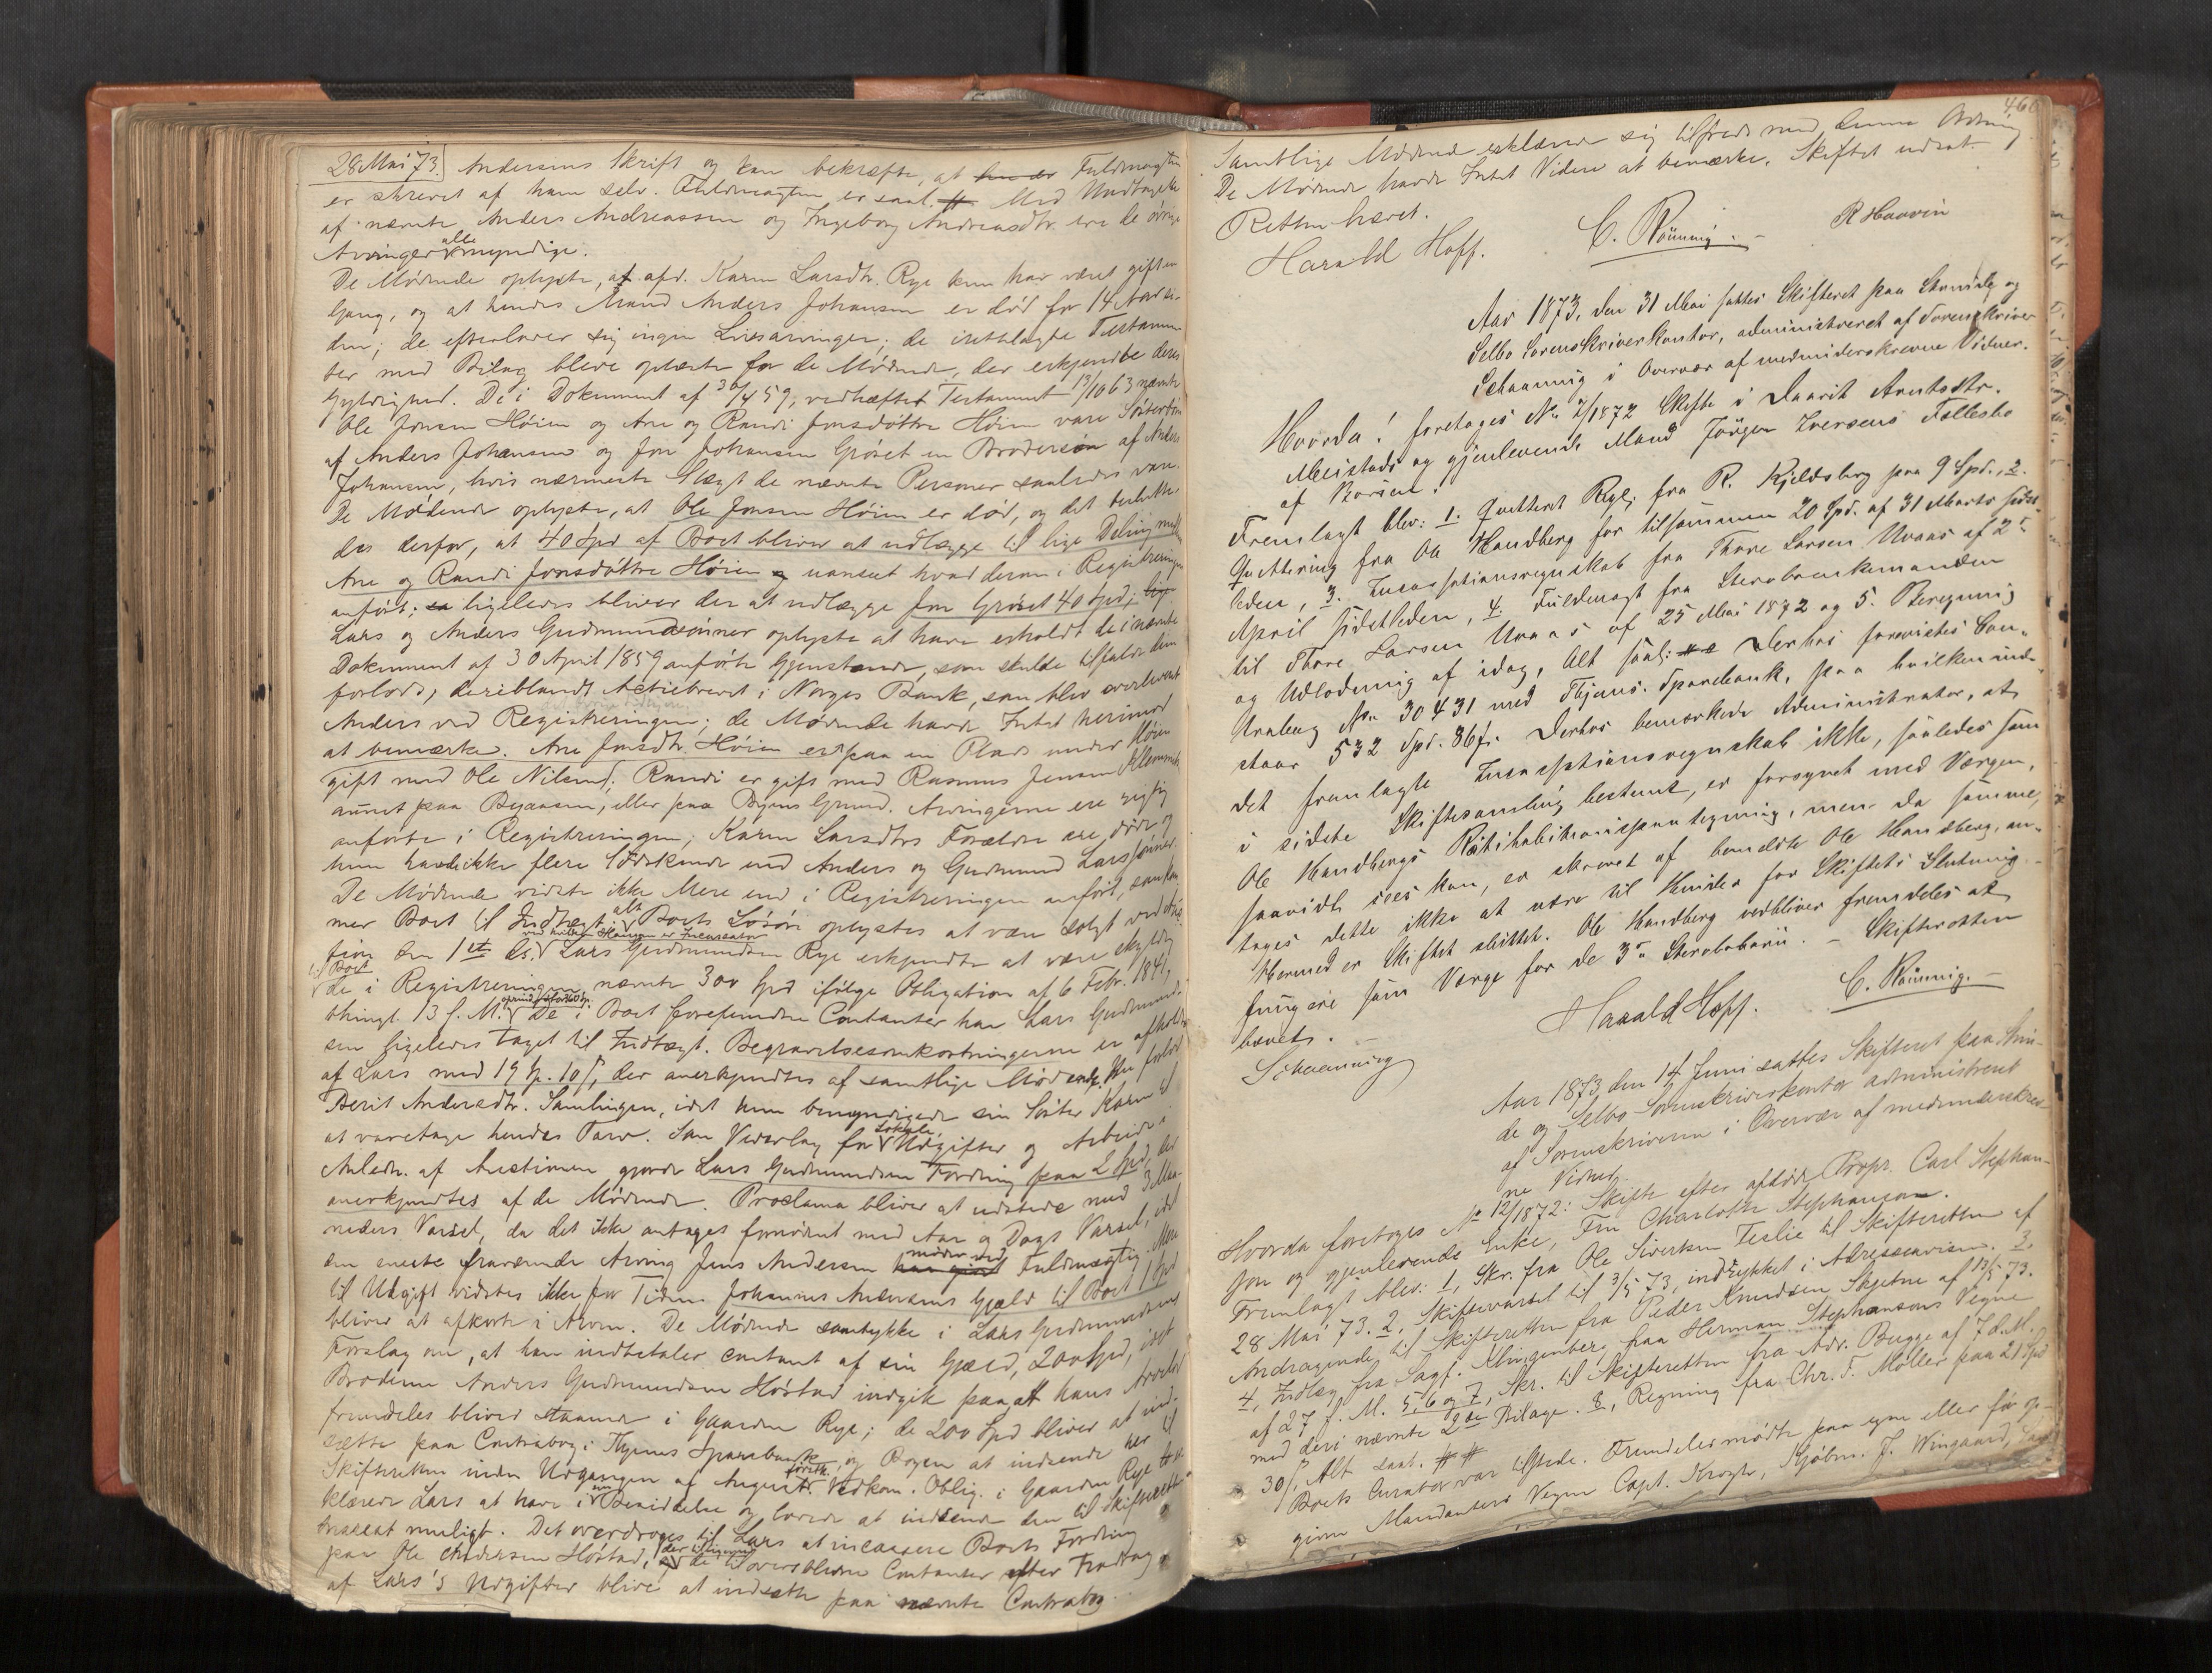 28 Mai 73. Andersens Skrift og kan bekræfte, at hun er Fuldmagten
er skrevet af ham selv. Fuldmagten er saal. # Med Undtagelse
af nævnte Anders Andreassen og Ingeborg Andreasdtr. ere de øvrige
Arvinger alle myndige.
De Mødende oplyste, at afd. Karen Larsdtr. Rye kun har været gift en
Gang, og at hendes Mand Anders Johansen er død for 14 Aar si-
den; de efterlader sig ingen Livsarvinger; de iretlagte Testamen-
ter med Bilag bleve oplæste for de Mødende, der erkjendte deres
Gyldighed. De i Dokument af 30/4 59, vedhæftet Testament 13/10 63 nævnte
Ole Jonsen Høiem og Ane og Randi Jonsdøttre Høiem vare Søsterbørn
af Anders Johansen og Jon Johansen Grøset en Brodersøn af Anders
Johansen, hvis nærmeste Slægt de nævnte Personer saaledes vare.
De Mødende oplyste, at Ole Jonsen Høiem er død, og det besluttes
des derfor, at 40 Spd af Boet bliver at udlægge til lige Deling mellem
Ane og Randi Jonsdøttre Høiem og uanseet hvad derom i Registreringen
anført; ligeledes bliver der at udlægge Jon Grøset 40 Spd;
Lars og Anders Gudmundsønner oplyste at have erholdt de i nævnte
Dokument af 30 April 1859 anførte Gjenstande, som skulde tilfalde dem
forlods, deriblandt Actiebrevet i Norges Bank, som blev overleveret
Anders ved Registreringen; de Mødende havde Intet herimod
at bemærke. Ane Jonsdtr. Høiem er paa en Plads under Høiem
gift med Ole Nilsen; Randi er gift med Rasmus Jensen
paa Byaasen, eller paa Byens Grund. Arvingerne ere rigtig
anførte i Registreringen; Karen Larsdtrs Forældre ere døde og
hun havde ikke flere Sødskende end Anders og Gudmund Larssønner.
De Mødende vidste ikke Mere end i Registreringen anført, som kom-
mer Boet til Indtægt; alt Boets Løsøre oplystes at være solgt ved Auk-
tion den 1ste ds. ved hvilken er Incassator Lars Gudmundsen Rye erkjendte at være skyldig
til Boet de i Registreringen nævnte 300 Spd ifølge Obligation af 6 Febr. 1841,
thingl. 13 f. M. De i Boet forefundne Contanter har Lars Gudmund-
sen ligeledes taget til Indtægt. Begravelsesomkostningerne er afholdte
af Lars med 19 Sp. 10 ß, der anerkjendtes af samtlige Mødende. Nu forlod
Berit Andersdtr. Samlingen, idet hun bemyndigede sin Søster Karen til
at varetage hendes Tarv. Som Vederlag for Lokale, Udgifter og Arbeide i
Anledn. af Auctionen gjorde Lars Gudmundsen Fordring paa 2 Spd, der
anerkjendtes af de Mødende. Proclama bliver at udstede med 3 Maa-
neders Varsel, da det ikke antages fornødent med Aar og Dags Varsel, idet
den eneste fraværende Arving Jens Andersen har givet møder ved Fuldmægtig. Mere
til Udgift vidstes ikke for Tiden. Johannes Andersens Gjæld til Boet 1 Spd
bliver at afkorte i Arven. De Mødende samtykke i Lars Gudmundsens
Forslag om, at han indbetaler contant af sin Gjæld, 200 Spd, idet
Broderen Anders Gudmundsen Høstad indgik paa, at hans Arvelod
fremdeles bliver staaende i Gaarden Rye; de 200 Spd bliver at ind-
sætte paa Contrabog i Thjems Sparebank, og Bogen at indsende her til
Skifteretten inden Udgangen af August førstk. Vedkom. Oblig. i Gaarden Rye er-
klærede Lars at have i sin Besiddelse og lovede at indsende den til Skifteretten
snarest muligt. Det overdroges til Lars at incassere Boets Fordring
paa Ole Andersen Høstad, og de tiloversblevne Contanter efter Fradrag
af Lars's Udgifter blive at indsætte paa nævnte Contrabog.
460
Samtlige Mødende erklærede sig tilfreds med denne Ordning
De Mødende havde Intet Videre at bemærke. Skiftet udsat.
Retten hævet.
Harald Hoff. C. Rønning. R Haavin
Aar 1873, den 31 Mai sattes Skifteret paa Strinde og
Selbo Sorenskriverkontor, administreret af Sorenskriver
Schaanning i Overvær af medunderskrevne Vidner.
Hvorda! foretoges No 2/1872 Skifte i Daarit Arntsdtr.
Meistads og gjenlevende Mand Jørgen Iversens Fællesbo
af Borsen.
Fremlagt blev: 1. Qvitteret Regn. fra R. Kjeldsberg paa 9 Spd., 2.
Qvittering fra Ole Handberg for tilsammen 20 Spd. af 31 Marts sidst-
leden, 3. Incassationsregnskab fra Thore Larsen Uvaas af 25
April sidstleden, 4. Fuldmagt fra Sterbœnkemanden
til Thore Larsen Uvaas af 25 Mai 1872 og 5. Beregning
og Udlodning af idag, Alt saal: Derhos foreviistes Con-
trabog No 30431 med Thjems Sparebank, paa hvilken inde-
staar 532 Spd. 86 ß. Derhos bemærkede Administrator, at
det fremlagte Incassationsregnskab ikke, saaledes som
i sidste Skiftesamling bestemt, er forsynet med Værgen,
Ole Handbergs Ratihabitionspaategning, men da samme,
saavidt sees kan, er skrevet af bemeldte Ole Handberg, an-
tages dette ikke at være til Hinder for Skiftets Slutning.
Hermed er Skiftet sluttet. Ole Handberg vedbliver fremdeles at
fungere som Værge for de 3de Sterbobørn. – Skifteretten
hævet. –
Schaanning Harald Hoff. C. Rønnig. –
Aar 1873 den 14 Juni sattes Skifteret paa Strin-
de og Selbo Sorenskriverkontor administreret
af Sorenskriveren i Overvær af medunderskrev-
ne Vidner.
Hvorda foretoges No 12/1872: Skifte efter afdøde Propr. Carl Stephan-
son og gjenlevende Enke, Fru Charlotte Stephanson.
Fremlagt blev: 1, Skr. fra Ole Sivertsen Teslie til Skifteretten af
28 Mai 73. 2, Skiftevarsel til 3/5 73, indrykket i Adresseavisen. 3,
Andragende til Skifteretten fra Peder Knudsen Skjetne af 13/5 73.
4, Indlæg fra Sagf. Klingenberg paa Herman Stephansons Vegne
af 27 f. M. 5, 6 og 7, Skr. til Skifteretten fra Adv. Bugge af 7 d. M.
med deri nævnte 2de Bilage. 8, Regning fra Chr. T. Møller paa 21 Spd
30 ß, Alt saal. # #
Boets Curator var tilstede. Fremdeles mødte paa egne eller for op-
givne Mandanters Vegne Capt. Krogh, Kjøbm. J. Wingaard,